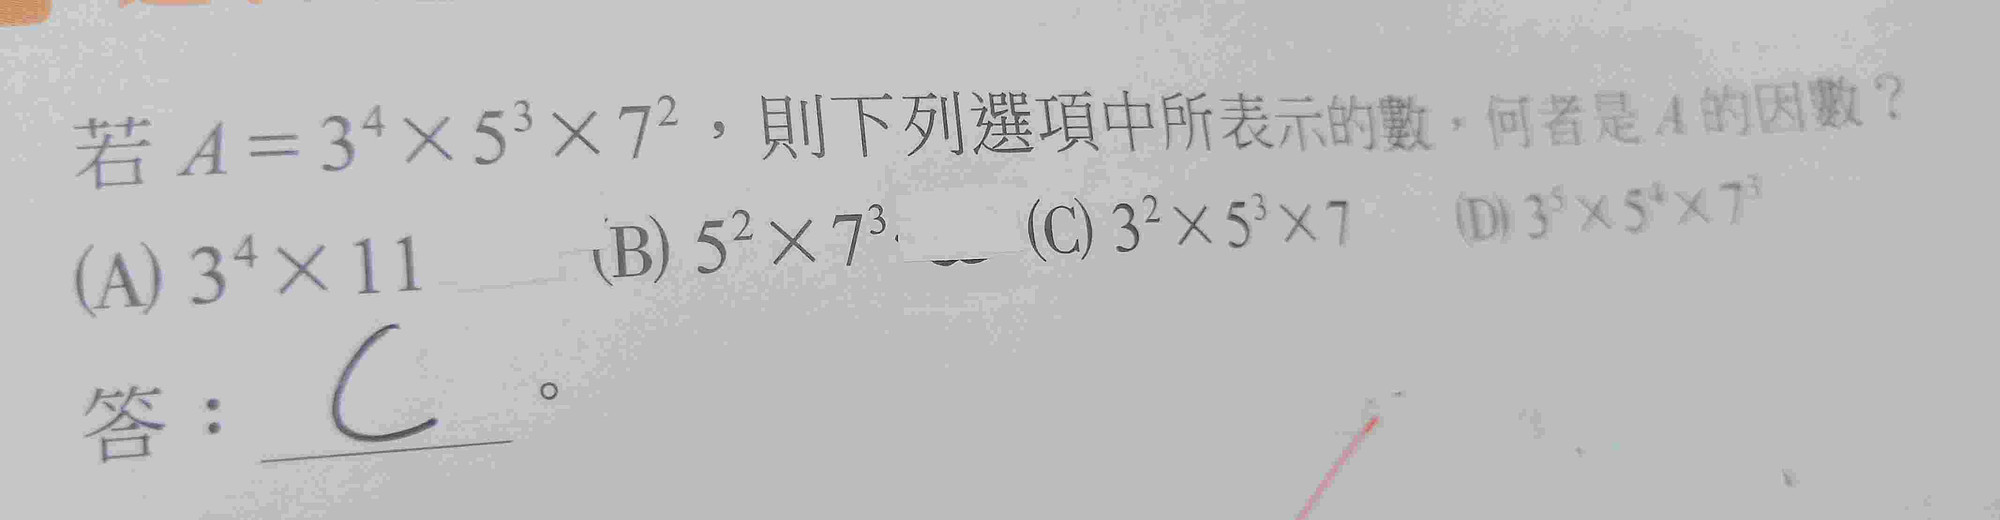 若 A = 3⁴ × 5³ × 7²，則下列選項中所表示的數，何者是 A 的因數？
(A) 3⁴ × 11 (B) 5² × 7³ (C) 3² × 5³ × 7 (D) 3⁵ × 5⁴ × 7³
答：C。